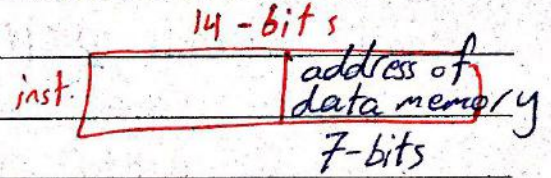 14-bits
inst.
address of
data memory
7-bits